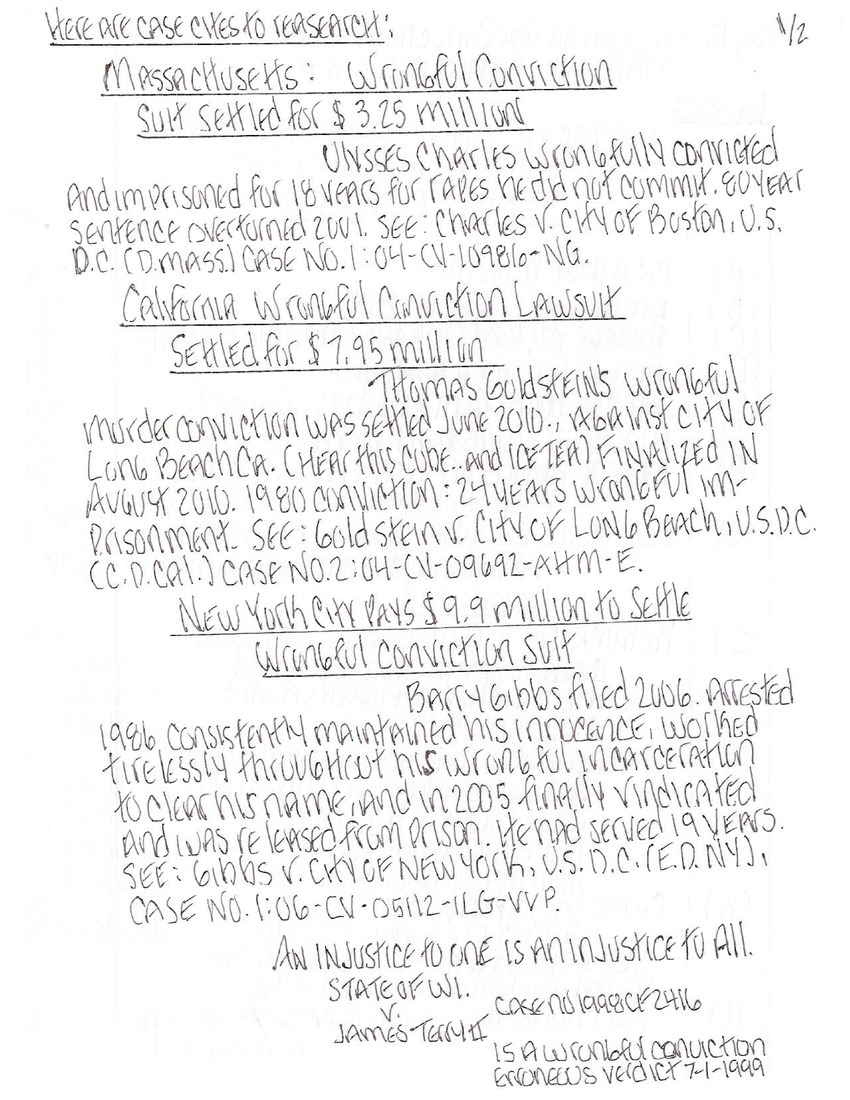 HERE ARE CASE CITES TO REASEARCH:
1/2
MASSACHUSETTS: WRONGFUL CONVICTION
SUIT SETTLED FOR $3.25 MILLION
ULYSSES CHARLES WRONGFULLY CONVICTED
AND IMPRISONED FOR 18 YEARS FOR RAPES HE DID NOT COMMIT. 80 YEAR
SENTENCE OVERTURNED 2001. SEE: CHARLES V. CITY OF BOSTON, U.S.
D.C. (D.MASS.) CASE NO. 1:04-CV-10986-NG.
CALIFORNIA WRONGFUL CONVICTION LAWSUIT
SETTLED FOR $7.95 MILLION
THOMAS GOLDSTEIN'S WRONGFUL
MURDER CONVICTION WAS SETTLED JUNE 2010., AGAINST CITY OF
LONG BEACH CA. (HEAR THIS CUBE.. AND ICE TEA) FINALIZED IN
AUGUST 2010. 1980 CONVICTION: 24 YEARS WRONGFUL IM-
PRISONMENT. SEE: GOLDSTEIN V. CITY OF LONG BEACH, U.S.D.C.
(C.D.CAL.) CASE NO. 2:04-CV-09692-AHM-E.
NEW YORK CITY PAYS $9.9 MILLION TO SETTLE
WRONGFUL CONVICTION SUIT
BARRY GIBBS FILED 2006. ARRESTED
1986 CONSISTENTLY MAINTAINED HIS INNOCENCE, WORKED
TIRELESSLY THROUGHTOUT HIS WRONGFUL INCARCERATION
TO CLEAR HIS NAME, AND IN 2005 FINALLY VINDICATED
AND WAS RELEASED FROM PRISON. HE HAD SERVED 19 YEARS.
SEE: GIBBS V. CITY OF NEW YORK, U.S.D.C. (E.D. NY),
CASE NO. 1:06-CV-05112-ILG-VVP.
AN INJUSTICE TO ONE IS AN INJUSTICE TO ALL.
STATE OF WI.
V.
JAMES TERRY II
CASE NO 1998CF2416
IS A WRONGFUL CONVICTION
ERRONEOUS VERDICT 7-1-1999